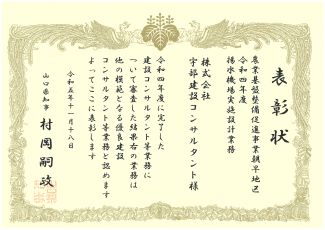 表彰状
農業基盤整備促進事業朝早地区
令和四年度
揚水機場実施設計業務
株式会社
宇部建設コンサルタント様
令和四年度に完了した
建設コンサルタント等業務に
ついて審査した結果右の業務は
他の模範となる優良建設
コンサルタント等業務と認めます
よってここに表彰します
令和五年十一月十八日
山口県知事
村岡嗣政